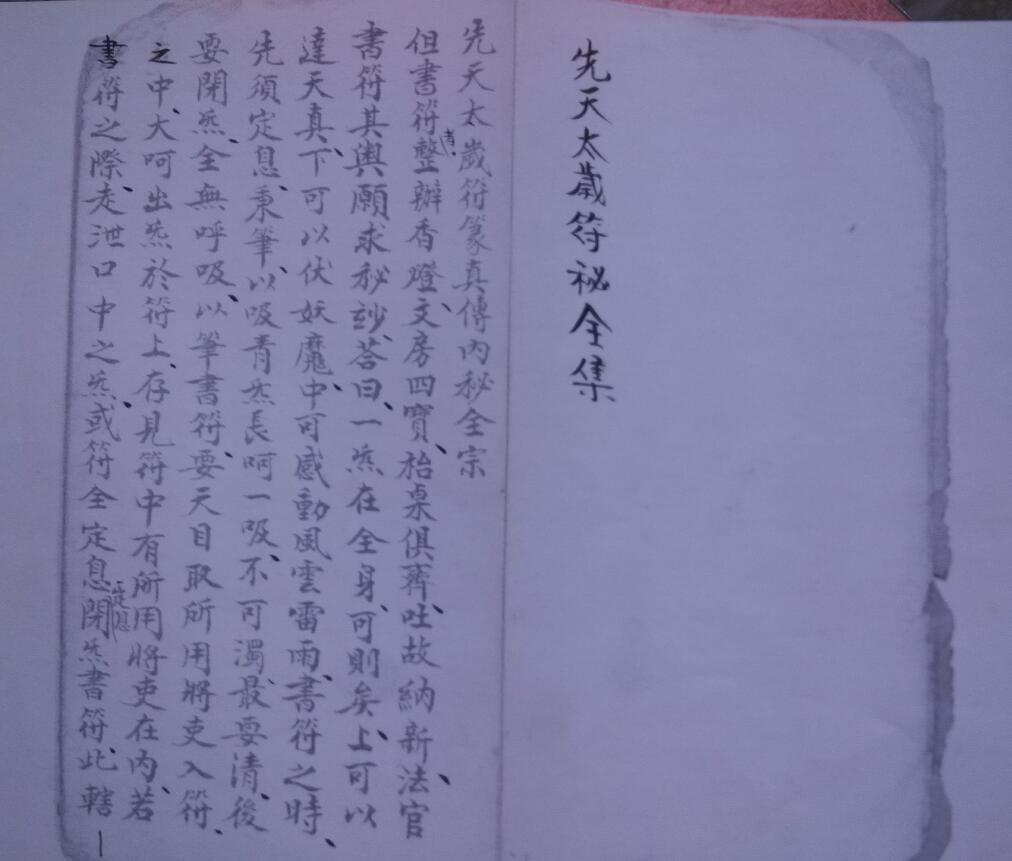 先天太歲符秘全集
先天太歲符篆真傳內秘全宗
但書符者、整辦香燈、文房四寶、枱桌俱薺、吐故納新、法官
書符其輿願求秘玅、荅曰、一炁在全身、可則矣、上可以
達天真、下可以伏妖魔、中可感動風雲雷雨、書符之時、
先須定息、秉筆、以吸青炁長呵一吸、不可濁、最要清、後
要閉炁、全無呼吸、以筆書符、要天目取所用將吏入符、
之中、大呵出炁於符上、存見符中有所用將吏在內、若
書符之際、走泄口中之炁、或符全定息定息閉炁書符、此轄